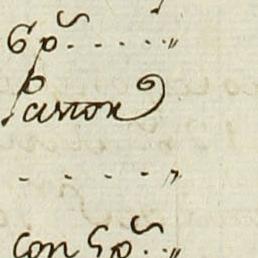 6 ps. . . . . . „
Parron
. . . . . „
con 5 ps. . „